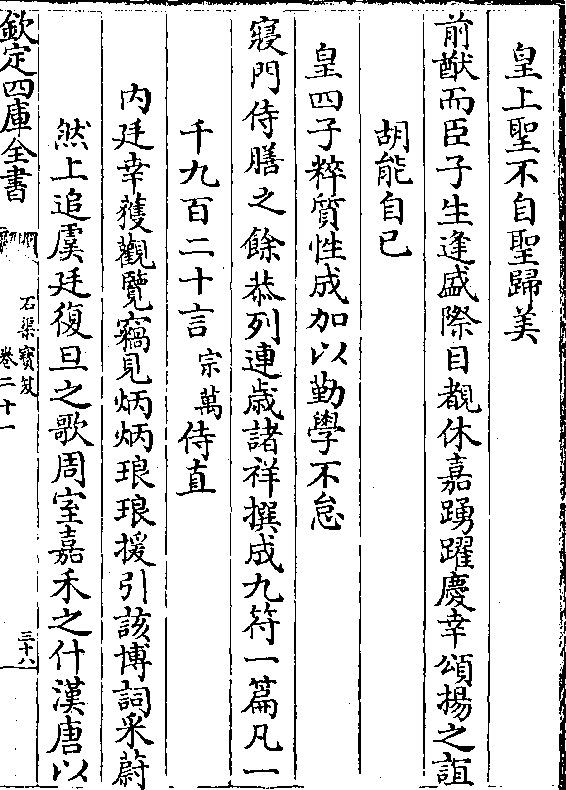 皇上聖不自聖歸美
前猷而臣子生逢盛際目覩休嘉踴躍慶幸頌揚之誼
胡能自已
皇四子粹質性成加以勤學不怠
寢門侍膳之餘恭列連歲諸祥撰成九符一篇凡一
千九百二十言宗萬侍直
内廷幸獲觀覽竊見炳炳琅琅援引該博詞采蔚
然上追虞廷復旦之歌周室嘉禾之什漢唐以
欽定四庫全書
石渠寶笈
卷二十一
三十八